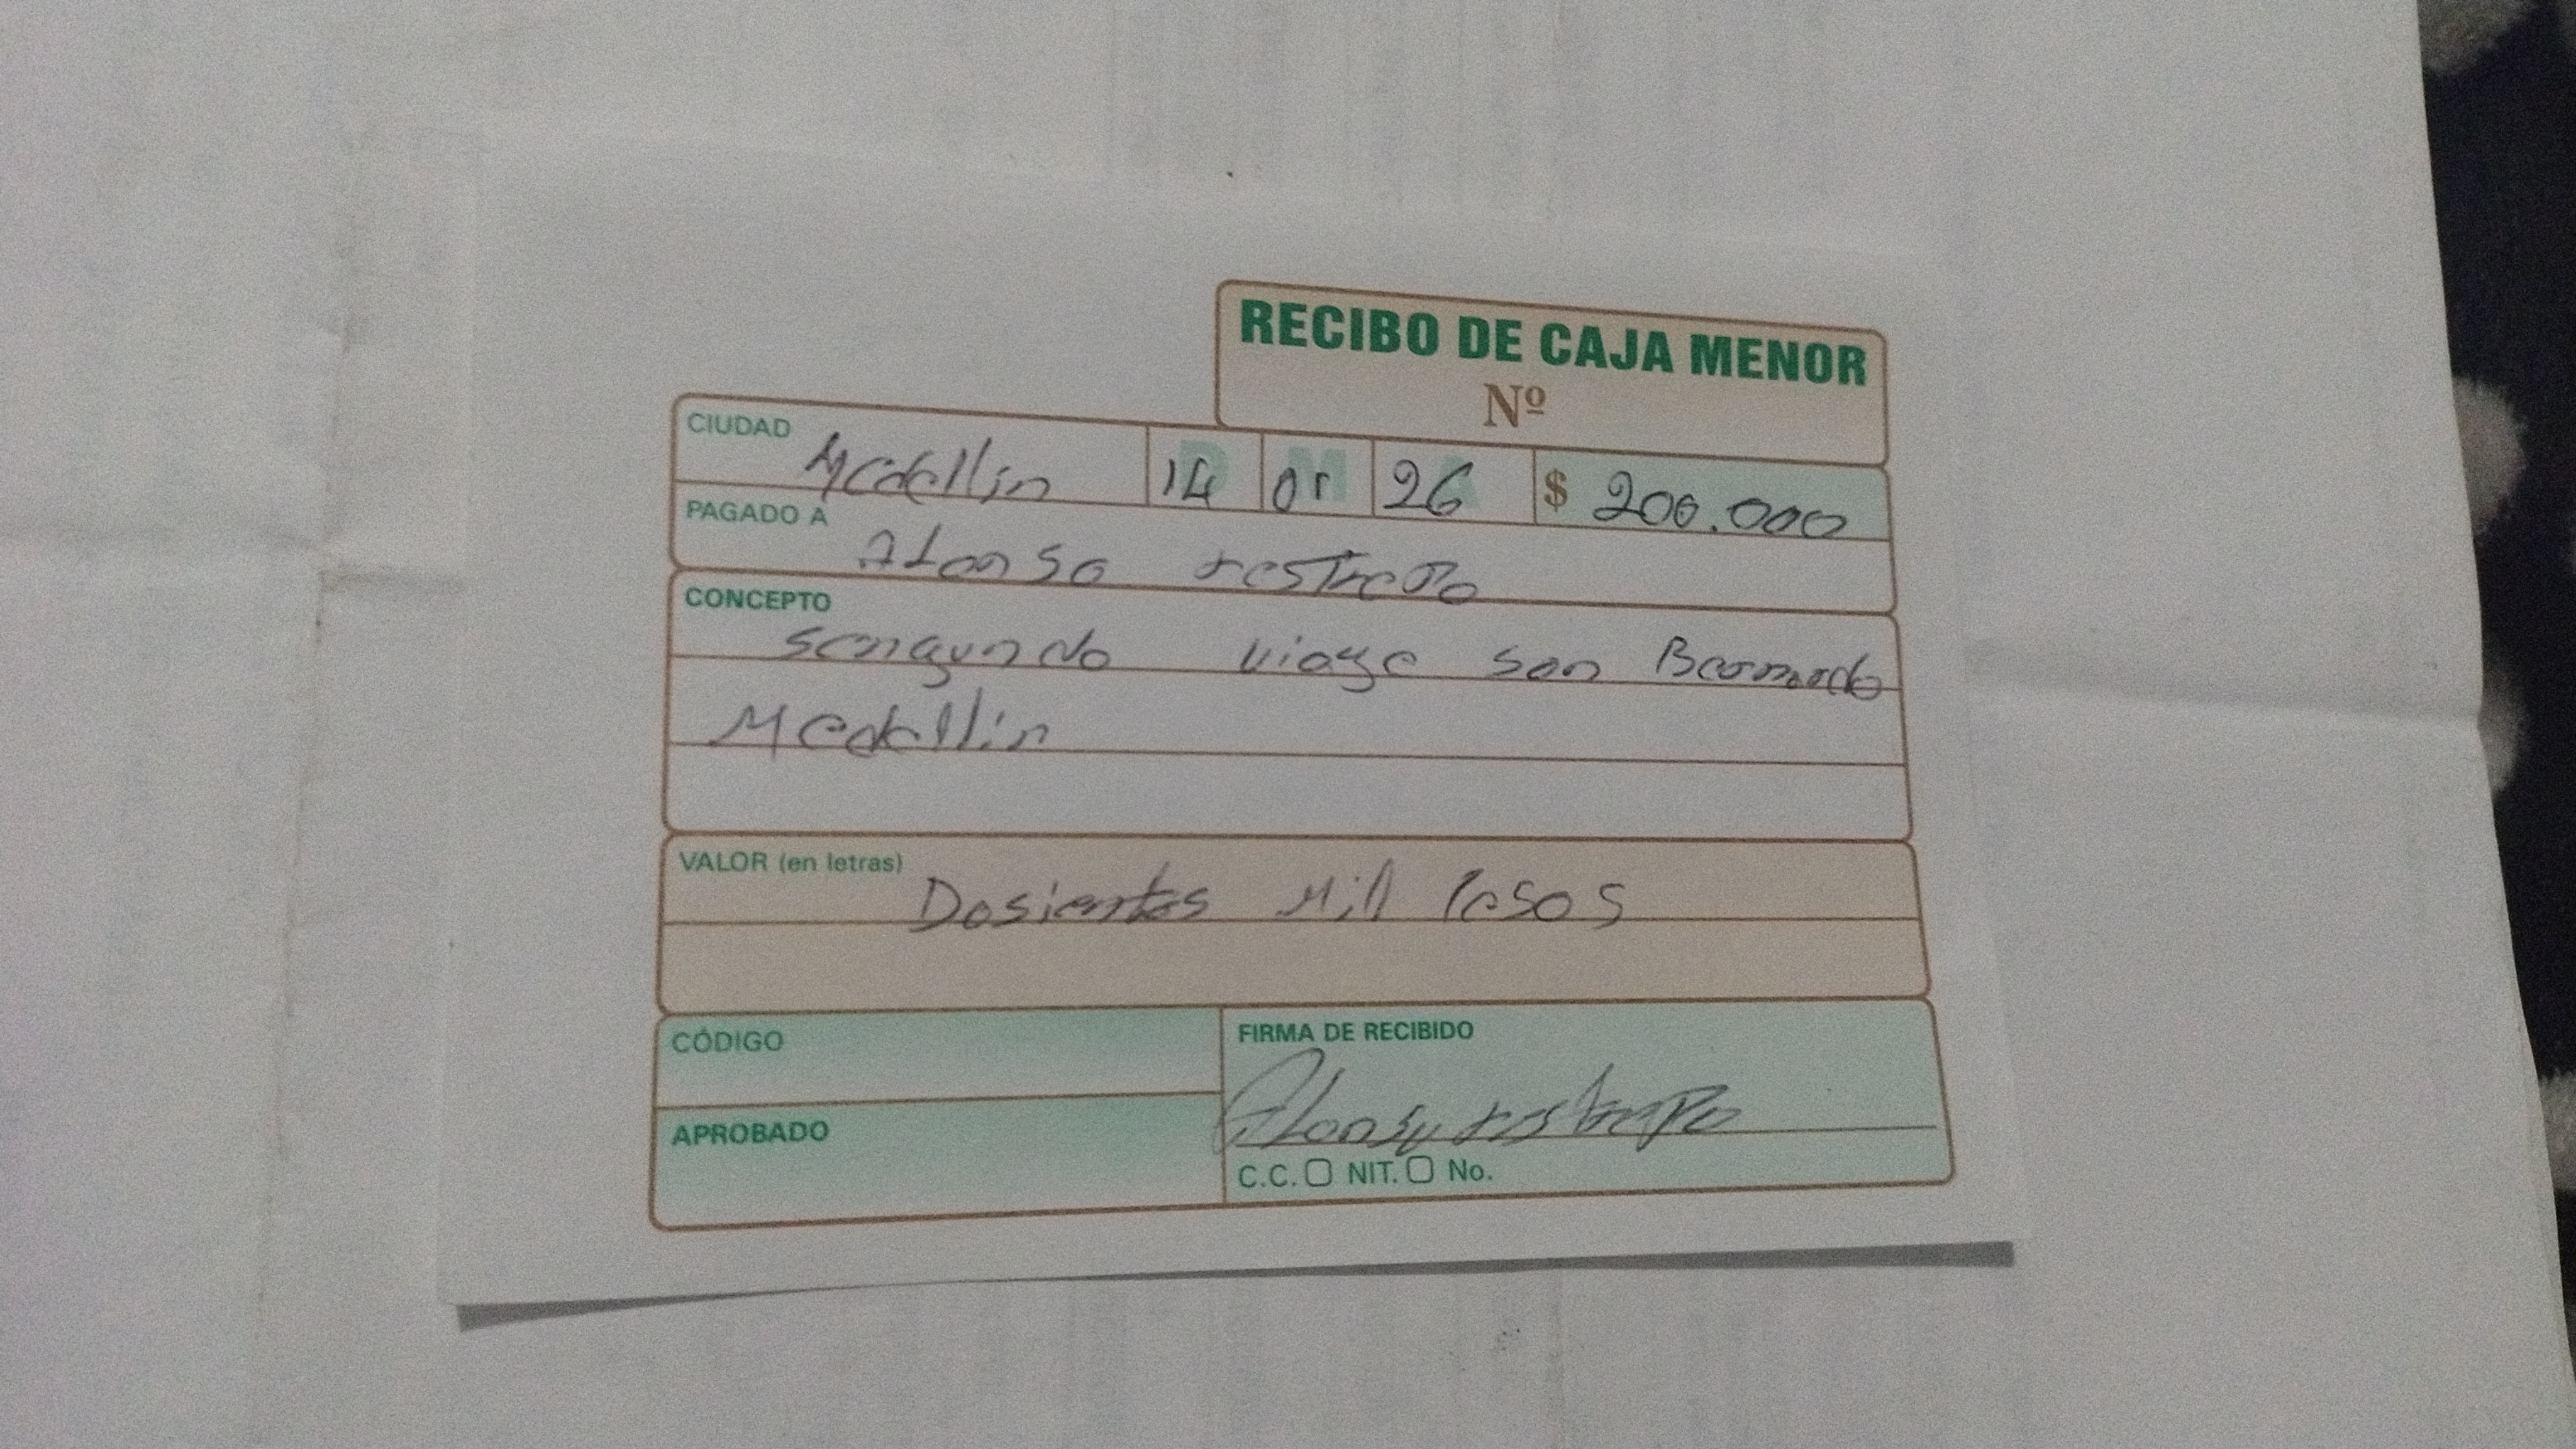 RECIBO DE CAJA MENOR
Nº
CIUDAD Medellin D 14 M 01 A 26 $ 200.000
PAGADO A Alonso restrepo
CONCEPTO
sengundo viaje san Bernardo
Medellin
VALOR (en letras) Dosientos Mill Pesos
CÓDIGO
FIRMA DE RECIBIDO
Alonso restrepo
APROBADO
C.C. NIT. No.